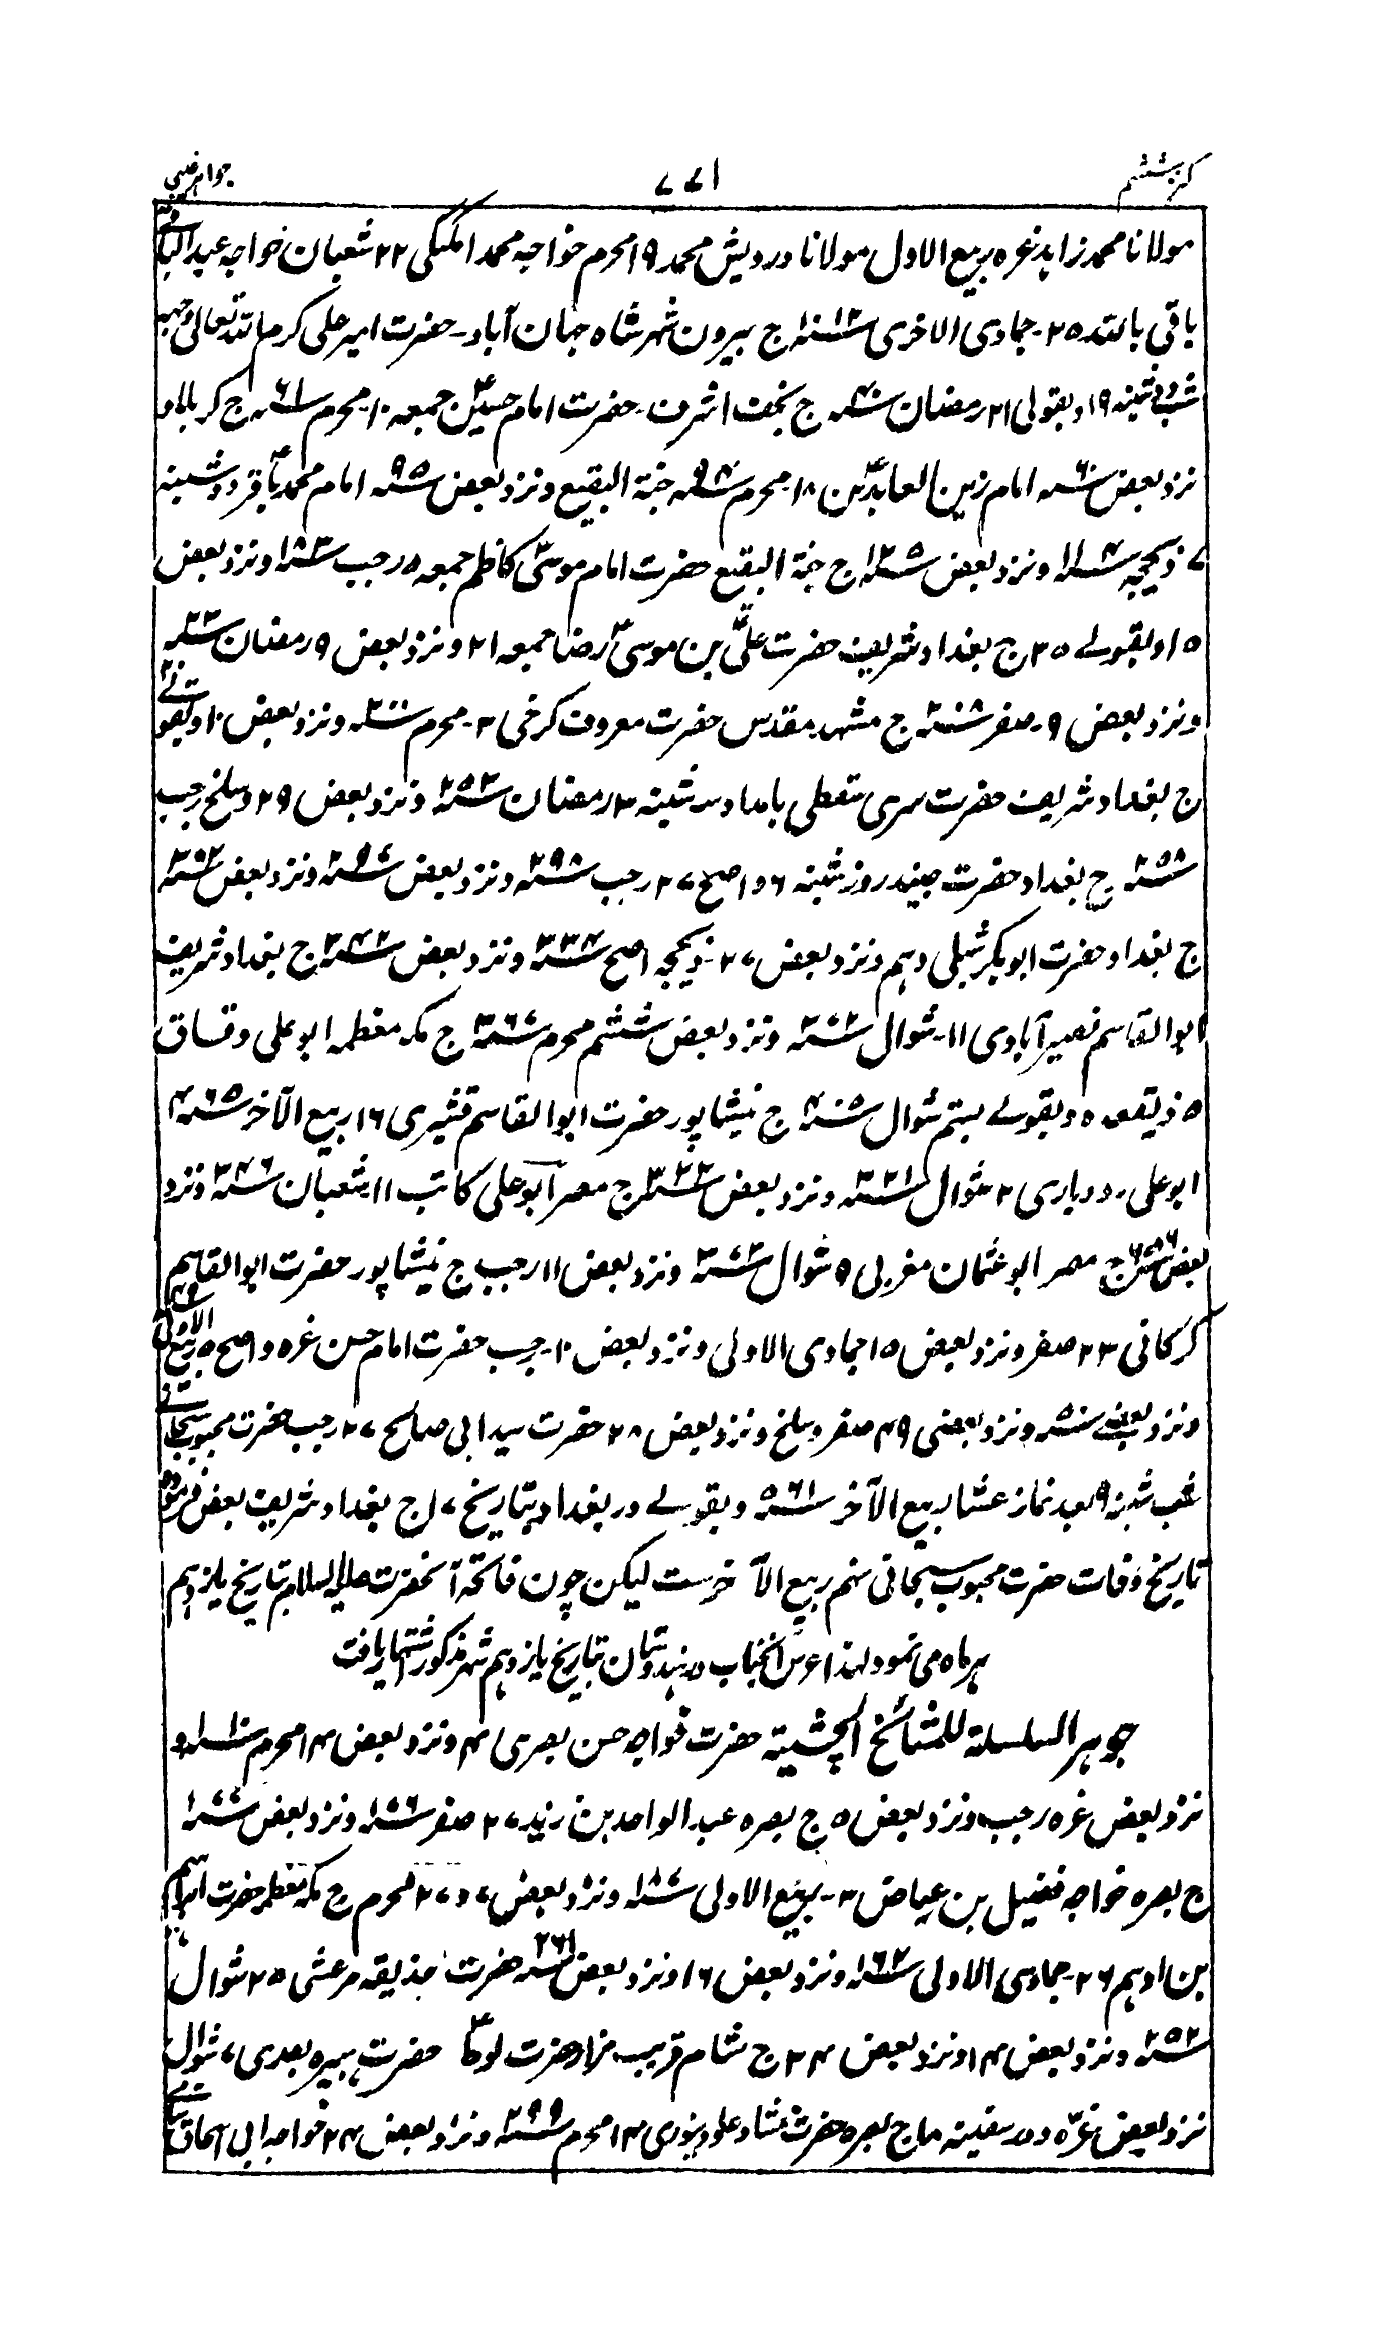 کنز ششم ۷۷۱ جواهر غیبی
مولانا محمد زاہد غرہ ربیع الاول مولانا درویش محمد ۱۹ محرم خواجہ محمد امکنگی ۲۲ شعبان خواجہ عبد الباقی
باقی باللہ ۲۵ جمادی الاخری ۱۰۱۲ ج بیرون شہر شاہ جہان آباد۔ حضرت امیر علی کرم اللہ تعالیٰ وجہہ
شب دوشنبہ ۱۹ و بقولی ۲۱ رمضان ۴۰ ج نجف اشرف۔ حضرت امام حسین جمعہ ۱۰ محرم ۶۱ ج کربلا و
نزد بعض ۶۰ امام زین العابدین ۱۸ محرم ۹۴ جنۃ البقیع و نزد بعض ۹۵ امام محمد باقر دوشنبہ
۷ ذیحجہ ۱۱۴ و نزد بعض ج جنۃ البقیع حضرت امام موسیٰ کاظم جمعہ ۵ رجب ۱۸۳ و نزد بعض
۱۵ و بقولے ۲۵ ج بغداد شریف حضرت علی بن موسیٰ رضا جمعہ ۲۱ و نزد بعض ۹ رمضان ۲۰۳
و نزد بعض ۹ صفر ۲۰۸ ج مشہد مقدس حضرت معروف کرخی ۲ محرم ۲۰۰ و نزد بعض ۱۰ و بقولے
ج بغداد شریف حضرت سری سقطی بامداد سہ شنبہ ۳ رمضان ۲۵۳ و نزد بعض ۲۹ و سلخ رجب
۲۵۸ ج بغداد حضرت جنید روز شنبہ ۶ و اصح ۲۷ رجب ۲۹۸ و نزد بعض ۲۹۷ و نزد بعض ۳۰۲
ج بغداد حضرت ابوبکر شبلی دہم و نزد بعض ۲۷ ذیحجہ اصح ۳۳۴ و نزد بعض ۳۴۲ ج بغداد شریف
ابوالقاسم نصیر آبادی ۱۱ شوال ۳۷۲ و نزد بعض ششم محرم ۳۶۷ ج مکہ معظمہ ابو علی دقاق
۵ ذیقعدہ و بقولے بستم شوال ۴۰۵ ج نیشاپور حضرت ابوالقاسم قشیری ۱۶ ربیع الآخر ۴۶۵
ابو علی رودباری ۲ شوال ۳۲۱ و نزد بعض ۳۲۲ ج مصر ابو علی کاتب ۱۱ شعبان ۳۴۶ و نزد
بعض ج مصر ابو عثمان مغربی ۵ شوال ۳۷۳ و نزد بعض ۱۱ رجب ج نیشاپور حضرت ابوالقاسم
گرکانی ۲۳ صفر و نزد بعض ۱۵ جمادی الاولی و نزد بعض ۱۰ رجب حضرت امام حسن غرہ و اصح ۵ ربیع الاولی
و نزد بعضے ۵۰ و نزد بعضی ۲۹ صفر و سلخ و نزد بعض ۲۸ حضرت سید ابی صالح ۲۷ رجب حضرت محبوب سبحانی
شب شنبہ ۹ بعد نماز عشا ربیع الآخر ۵۶۱ و بقولے در بغداد بتاریخ ۱۷ ج بغداد شریف بعض
تاریخ وفات حضرت محبوب سبحانی نہم ربیع الآخرست لیکن چون فاتحہ آنحضرت علیہ السلام بتاریخ یازدہم
ہر ماہ می نمود لہذا عرس آنجناب در ہندوستان بتاریخ یازدہم شہر مذکور اشتہار یافت
جوہر السلسلۃ للمشائخ الچشتیۃ حضرت خواجہ حسن بصری ۴ و نزد بعض ۱۴ محرم و
نزد بعض غرہ رجب و نزد بعض ۵ ج بصرہ عبد الواحد بن زید ۲۷ صفر ۱۷۶ و نزد بعض ۱۷۷
ج بصرہ خواجہ فضیل بن عیاض ۳ ربیع الاولی ۱۸۷ و نزد بعض ۷ و ۲۷ محرم ج مکہ معظمہ حضرت ابراہیم
بن ادہم ۲۶ جمادی الاولی ۱۶۲ و نزد بعض ۱۶ و نزد بعض ۲۶۱ حضرت حذیفہ مرعشی ۲۵ شوال
۲۵۲ و نزد بعض ۱۴ و نزد بعض ۲۴ ج شام قریب مزار حضرت لوط حضرت ہبیرہ بصری ۷ شوال
نزد بعض غرہ و در سفینہ ما ج بصرہ حضرت ممشاد علو دینوری ۱۴ محرم ۲۹۹ و نزد بعض ۲۴ خواجہ ابی اسحاق